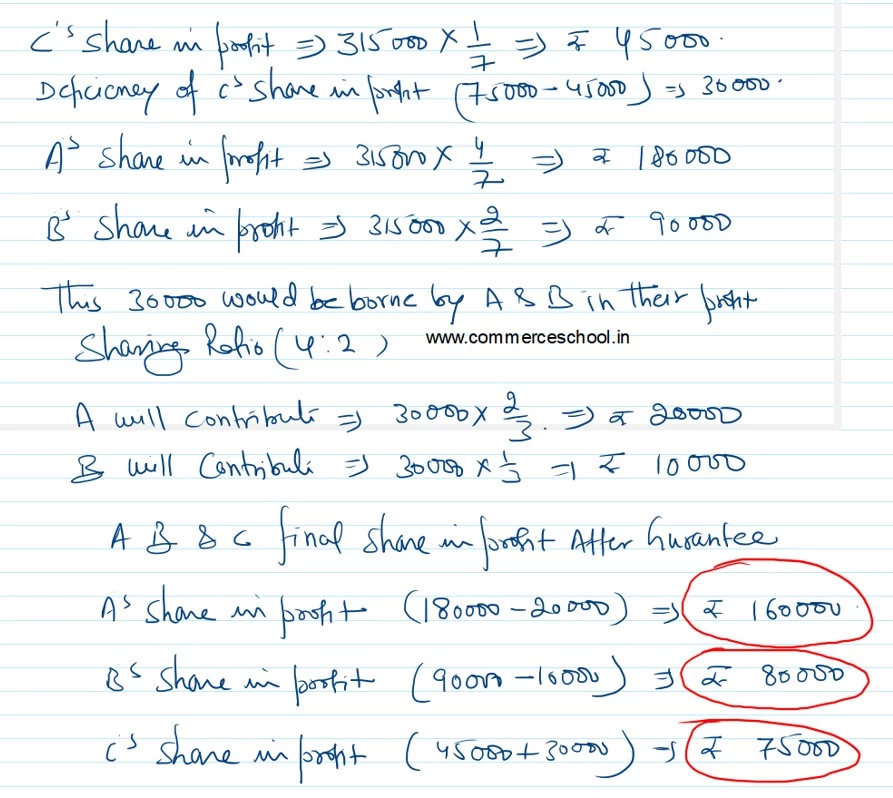 C's share in profit ⇒ 315000 × 1/7 ⇒ ₹ 45000.
Deficiency of C's share in profit (75000 - 45000) ⇒ 30000.
A's share in profit ⇒ 315000 × 4/7 ⇒ ₹ 180000
B's share in profit ⇒ 315000 × 2/7 ⇒ ₹ 90000
This 30000 would be borne by A & B in their profit
Sharing Ratio (4:2)
www.commerceschool.in
A will contribute ⇒ 30000 × 2/3. ⇒ ₹ 20000
B will Contribute ⇒ 30000 × 1/3 ⇒ ₹ 10000
A B & C final share in profit After Gurantee
A's share in profit (180000 - 20000) ⇒ ₹ 160000
B's share in profit (90000 - 10000) ⇒ ₹ 80000
C's share in profit (45000 + 30000) ⇒ ₹ 75000